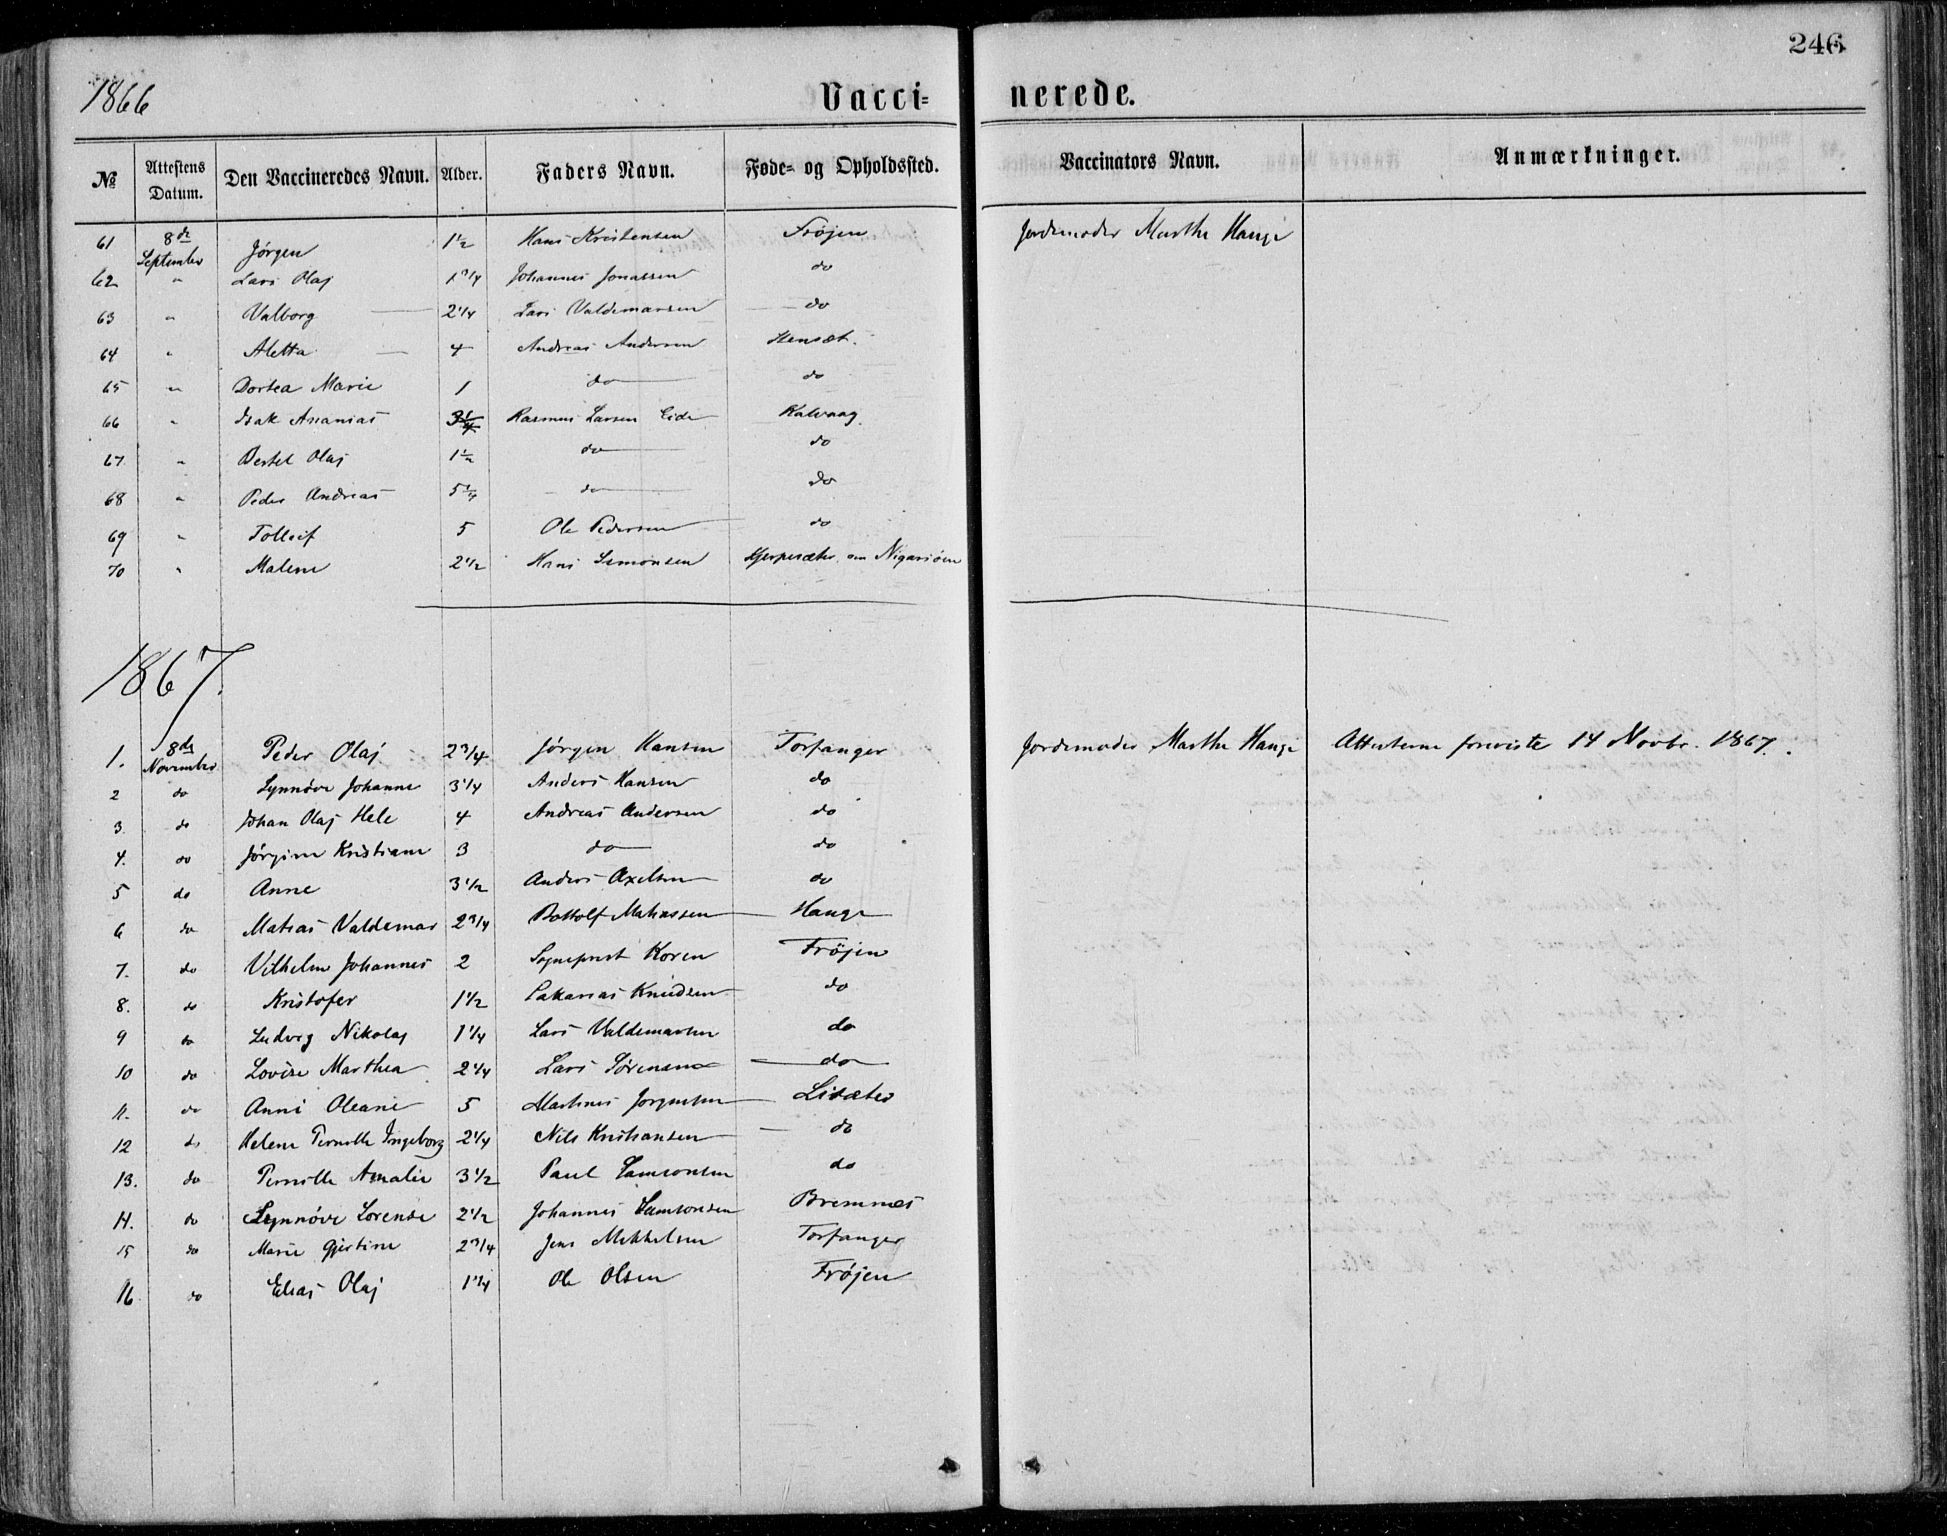 246
1866 Vacci= nerede.
№ Attestens Datum. Den Vaccineredes Navn. Alder. Faders Navn. Føde- og Opholdssted. Vaccinators Navn. Anmærkninger.
61 8de September Jørgen 1½ Hans Kristensen Frøjen Jordemoder Marthe Hauge
62 " Lars Olaj 1 3/4 Johannes Jonassen do
63 " Valborg 2 1/4 Lars Valdemarsen do
64 " Aletta 4 Andreas Andersen Stensæt.
65 " Dortea Marie 1 do do
66 " Isak Ananias 3 1/4 Rasmus Larsen Eide Kalvaag
67 " Bertel Olaj 1½ do do
68 " Peder Andreas 5 3/4 do do
69 " Tolleif 5 Ole Pedersen do
70 " Malene 2 1/2 Hans Simonsen
1867.
1. 8de November Peder Olaj 2 3/4 Jørgen Hansen Torfanger Jordemoder Marthe Hauge Attesterne foreviste 14 Novbr. 1867.
2 do Synnøve Johanne 3 1/4 Anders Hansen do
3. do Johan Olaj Hele 4 Andreas Andersen do
4. do Jørgine Kristiane 3 do do
5 do Anne 3 1/2 Anders Axelsen do
6 do Matias Valdemar 2 3/4 Bottolf Matiassen Hauge
7. do Vilhelm Johannes 2 Sogneprest Koren Frøjen
8. do Kristofer 1 1/2 Sakarias Knudsen do
9 do Ludvig Nikolaj 1 1/4 Lars Valdemarsen do
10 do Lovise Marthea 2 1/4 Lars Sørensen do
11. do Anni Oleane 5 Martines Jørgensen Lisæter
12 do Helene Pernille Ingeborg 2 1/4 Nils Kristiansen do
13. do Pernille Amalie 3 1/2 Paul Samsonsen do
14. do Synnøve Lorense 2 1/2 Johannes Samsonsen Bremnes
15 do Marie Gjertine 2 3/4 Jens Mikkelsen Torfanger
16 do Elias Olaj 1 3/4 Ole Olsen Frøjen